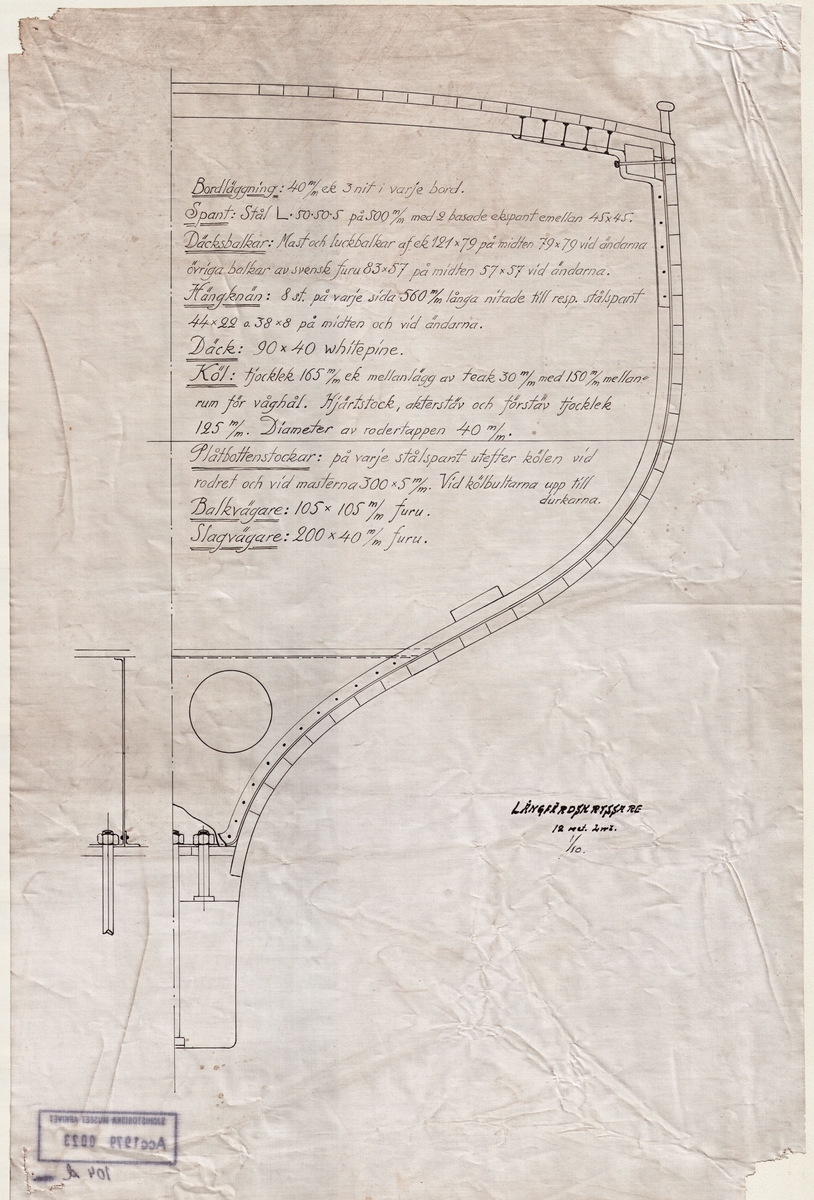 Bordläggning: 40 m/m ek 3 nit i varje bord.
Spant: Stål L·50·50·5 på 500 m/m med 2 basade ekspant emellan 45x45.
Däcksbalkar: Mast och luckbalkar af ek 121×79 på midten 79×79 vid ändarna
övriga balkar av svensk furu 83×57 på midten 57×57 vid ändarna.
Hängknän: 8 st. på varje sida 560 m/m långa nitade till resp. stålspant
44×22 o. 38×8 på midten och vid ändarna.
Däck: 90×40 whitepine.
Köl: tjocklek 165 m/m ek mellanlägg av teak 30 m/m med 150 m/m mellan-
rum för våghål. Hjärtstock, akterstäv och förstäv tjocklek
125 m/m. Diameter av rodertappen 40 m/m.
Plåtbottenstockar: på varje stålspant utefter kölen vid
rodret och vid masterna 300×5 m/m. Vid kölbultarna upp till
durkarna.
Balkvägare: 105× 105 m/m furu.
Slagvägare: 200×40 m/m furu.
LÅNGFÄRDSKRYSSARE
12 met. Lwl.
1/10.
SJÖHISTORISKA MUSEET ARKIVET
Acc1979 0023
104 d